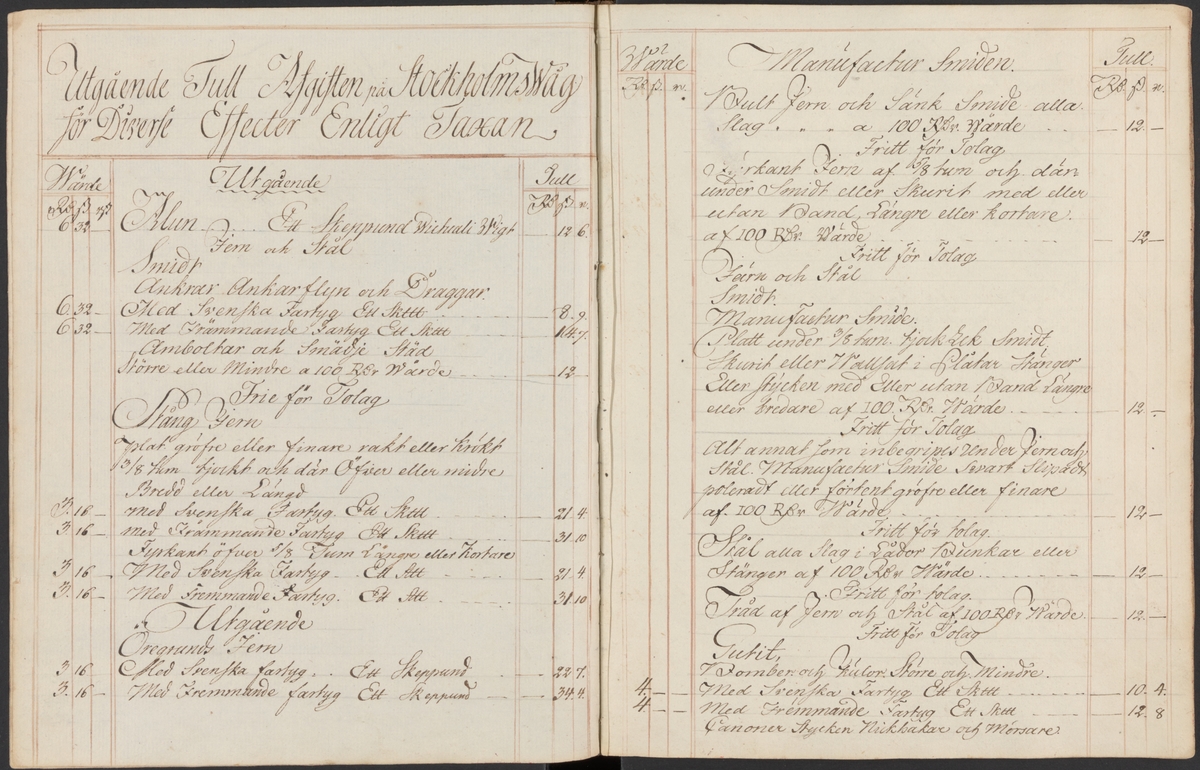 Utgående Tull Afgiften på StockholmsWåg
för Diverse Effecter Enligt Taxan
Wärde Utgående Tull
Rd ß Rd ß r.
6 32 Alun Ett Skeppund Wictuali Wigt 12 6
Jern och Stål
Smidt
Ankrar Ankarflyn och Draggar
6. 32 – Med Svenska Fartyg Ett Sk℔ 8. 9.
6. 32 – Med Främmande Fartyg Ett Sk℔ 14. 7.
Amboltar och Smädje Städ
Större eller Mindre a 100 Rdr Wärde 12 –
Frie för Tolag
Stång Jern
plat gröfre eller finare rakt eller krökt
3/8 tum tjockt och där Öfver eller mindre
Bredd eller Längd
3. 16 – med Svenska Fartyg Ett Sk℔ 21 4
3. 16 – med Främmande Fartyg Ett Sk℔ 31 10
Fyrkant öfver 5/8 Tum Längre eller Kortare
3. 16 – Med Svenska Fartyg Ett 21. 4.
3. 16 – Med Fremmande Fartyg. Ett 31 10
Utgående
Öregrunds Jern
3 16 Med Svenska fartyg Ett Skeppund 22 7.
3. 16 – Med Fremmande fartyg Ett Skeppund 34 4.
Wärde Manufactur Smiden. Tull.
Rd ß r. Rd ß r.
Bult Jern och Sänk Smide alla
Slag a 100 Rdr Wärde – 12. –
Fritt för Tolag
Fyrkant Jern af 5/8 tum och dän
under Smidt eller Skurit med eller
utan Band, Längre eller kortare
af 100 Rdr Wärde 12 –
Fritt för Tolag
Järn och Stål
Smidt.
Manufactur Smide.
Platt under 3/8 tum. tjocklek Smidt
Skurit eller Wallsat i Plåtar Stänger
Eller stycken med Eller utan Band Längre
eller bredare af 100 Rdr Wärde 12 –
Fritt för Tolag
Alt annat som inbegripes under Jern och
Stål Manufactur Smide Svart Slipadt
poleradt eller förtent gröfre eller finare
af 100 Rdr Wärde 12 –
Fritt för tolag.
Stål alla Slag i Lådor Bunkar eller
Stänger af 100 Rdr Wärde 12 –
Fritt för tolag.
Tråd af Jern och Stål af 100 Rdr Wärde 12. –
Fritt för Tolag
Gutit,
Bomber och Kulor Större och Mindre.
4. – – Med Svenska Fartyg Ett Sk℔ 10. 4.
4 – – Med Främmande Fartyg Ett Sk℔ 12. 8
Canoner Stycken Nickhakar och Mörsare